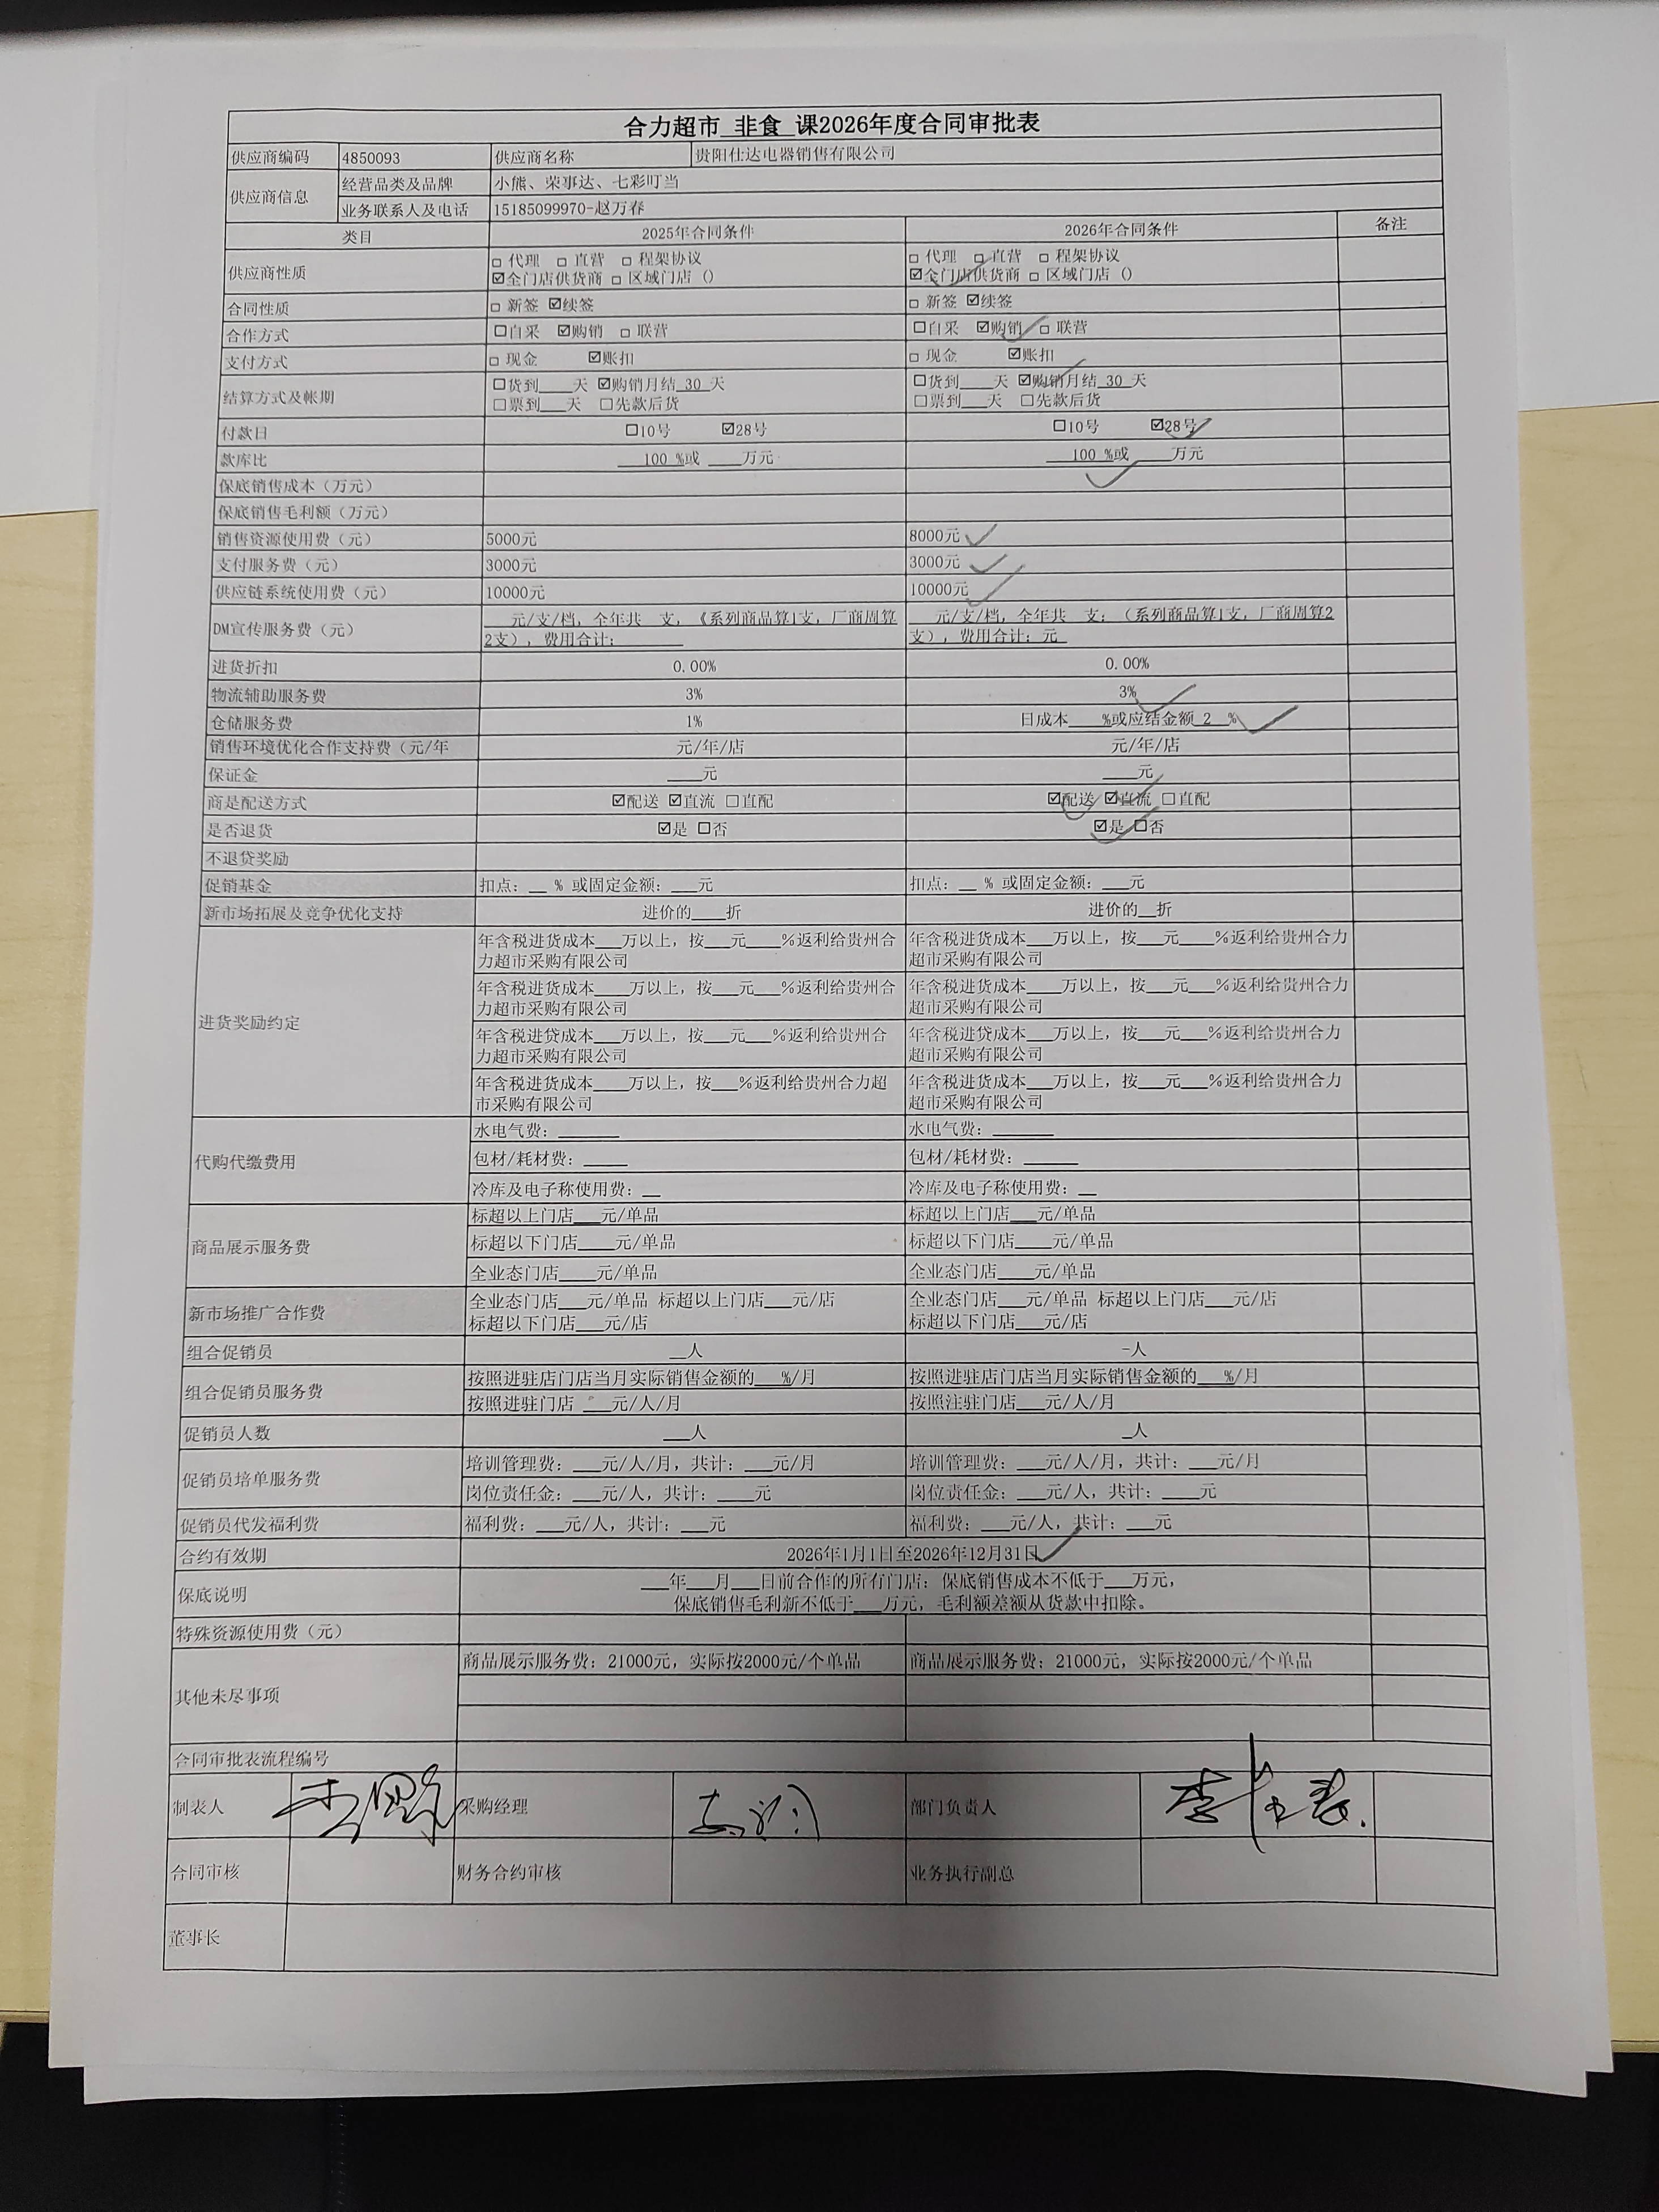 合力超市 非食 课2026年度合同审批表
供应商编码 4850093 供应商名称 贵阳仕达电器销售有限公司
供应商信息 经营品类及品牌 小熊、荣事达、七彩叮当
业务联系人及电话 15185099970-赵万春
类目 2025年合同条件 2026年合同条件 备注
供应商性质 □ 代理 □ 直营 □ 程架协议 □ 代理 □ 直营 □ 程架协议
☑全门店供货商 □ 区域门店 () ☑全门店供货商 □ 区域门店 ()
合同性质 □ 新签 ☑续签 □ 新签 ☑续签
合作方式 □自采 ☑购销 □ 联营 □自采 ☑购销 □ 联营
支付方式 □ 现金 ☑账扣 □ 现金 ☑账扣
结算方式及帐期 □货到____天 ☑购销月结 30 天 □货到____天 ☑购销月结 30 天
□票到___天 □先款后货 □票到___天 □先款后货
付款日 □10号 ☑28号 □10号 ☑28号
款库比 100 %或 ____万元 100 %或 ____万元
保底销售成本（万元）
保底销售毛利额（万元）
销售资源使用费（元） 5000元 8000元
支付服务费（元） 3000元 3000元
供应链系统使用费（元） 10000元 10000元
DM宣传服务费（元） 元/支/档，全年共 支，《系列商品算1支，厂商周算 元/支/档，全年共 支；（系列商品算1支，厂商周算2
2支），费用合计： 支），费用合计；元
进货折扣 0.00% 0.00%
物流辅助服务费 3% 3%
仓储服务费 1% 日成本____%或应结金额 2 %
销售环境优化合作支持费（元/年 元/年/店 元/年/店
保证金 ____元 ____元
商是配送方式 ☑配送 ☑直流 □直配 ☑配送 ☑直流 □直配
是否退货 ☑是 □否 ☑是 □否
不退贷奖励
促销基金 扣点：__ % 或固定金额：___元 扣点：__ % 或固定金额：___元
新市场拓展及竞争优化支持 进价的____折 进价的__折
进货奖励约定 年含税进货成本___万以上，按___元____%返利给贵州合 年含税进货成本___万以上，按___元____%返利给贵州合力
力超市采购有限公司 超市采购有限公司
年含税进货成本____万以上，按___元___%返利给贵州合 年含税进货成本____万以上，按___元___%返利给贵州合力
力超市采购有限公司 超市采购有限公司
年含税进贷成本___万以上，按___元___%返利给贵州合 年含税进贷成本___万以上，按___元___%返利给贵州合力
力超市采购有限公司 超市采购有限公司
年含税进货成本____万以上，按___%返利给贵州合力超 年含税进货成本___万以上，按___元___%返利给贵州合力
市采购有限公司 超市采购有限公司
代购代缴费用 水电气费：_______ 水电气费：_______
包材/耗材费：_____ 包材/耗材费：______
冷库及电子称使用费：__ 冷库及电子称使用费：__
商品展示服务费 标超以上门店___元/单品 标超以上门店___元/单品
标超以下门店____元/单品 标超以下门店____元/单品
全业态门店____元/单品 全业态门店____元/单品
新市场推广合作费 全业态门店___元/单品 标超以上门店___元/店 全业态门店___元/单品 标超以上门店___元/店
标超以下门店___元/店 标超以下门店___元/店
组合促销员 __人 -人
组合促销员服务费 按照进驻店门店当月实际销售金额的___%/月 按照进驻店门店当月实际销售金额的___%/月
按照进驻门店 ___元/人/月 按照注驻门店___元/人/月
促销员人数 ___人 _人
促销员培单服务费 培训管理费：___元/人/月，共计：___元/月 培训管理费：___元/人/月，共计：___元/月
岗位责任金：___元/人，共计：____元 岗位责任金：___元/人，共计：____元
促销员代发福利费 福利费：___元/人，共计：___元 福利费：___元/人，共计：___元
合约有效期 2026年1月1日至2026年12月31日
保底说明 ___年___月___日前合作的所有门店：保底销售成本不低于___万元，
保底销售毛利新不低于___万元，毛利额差额从货款中扣除。
特殊资源使用费（元）
其他未尽事项 商品展示服务费；21000元，实际按2000元/个单品 商品展示服务费；21000元，实际按2000元/个单品
合同审批表流程编号
制表人 采购经理 部门负责人
合同审核 财务合约审核 业务执行副总
董事长